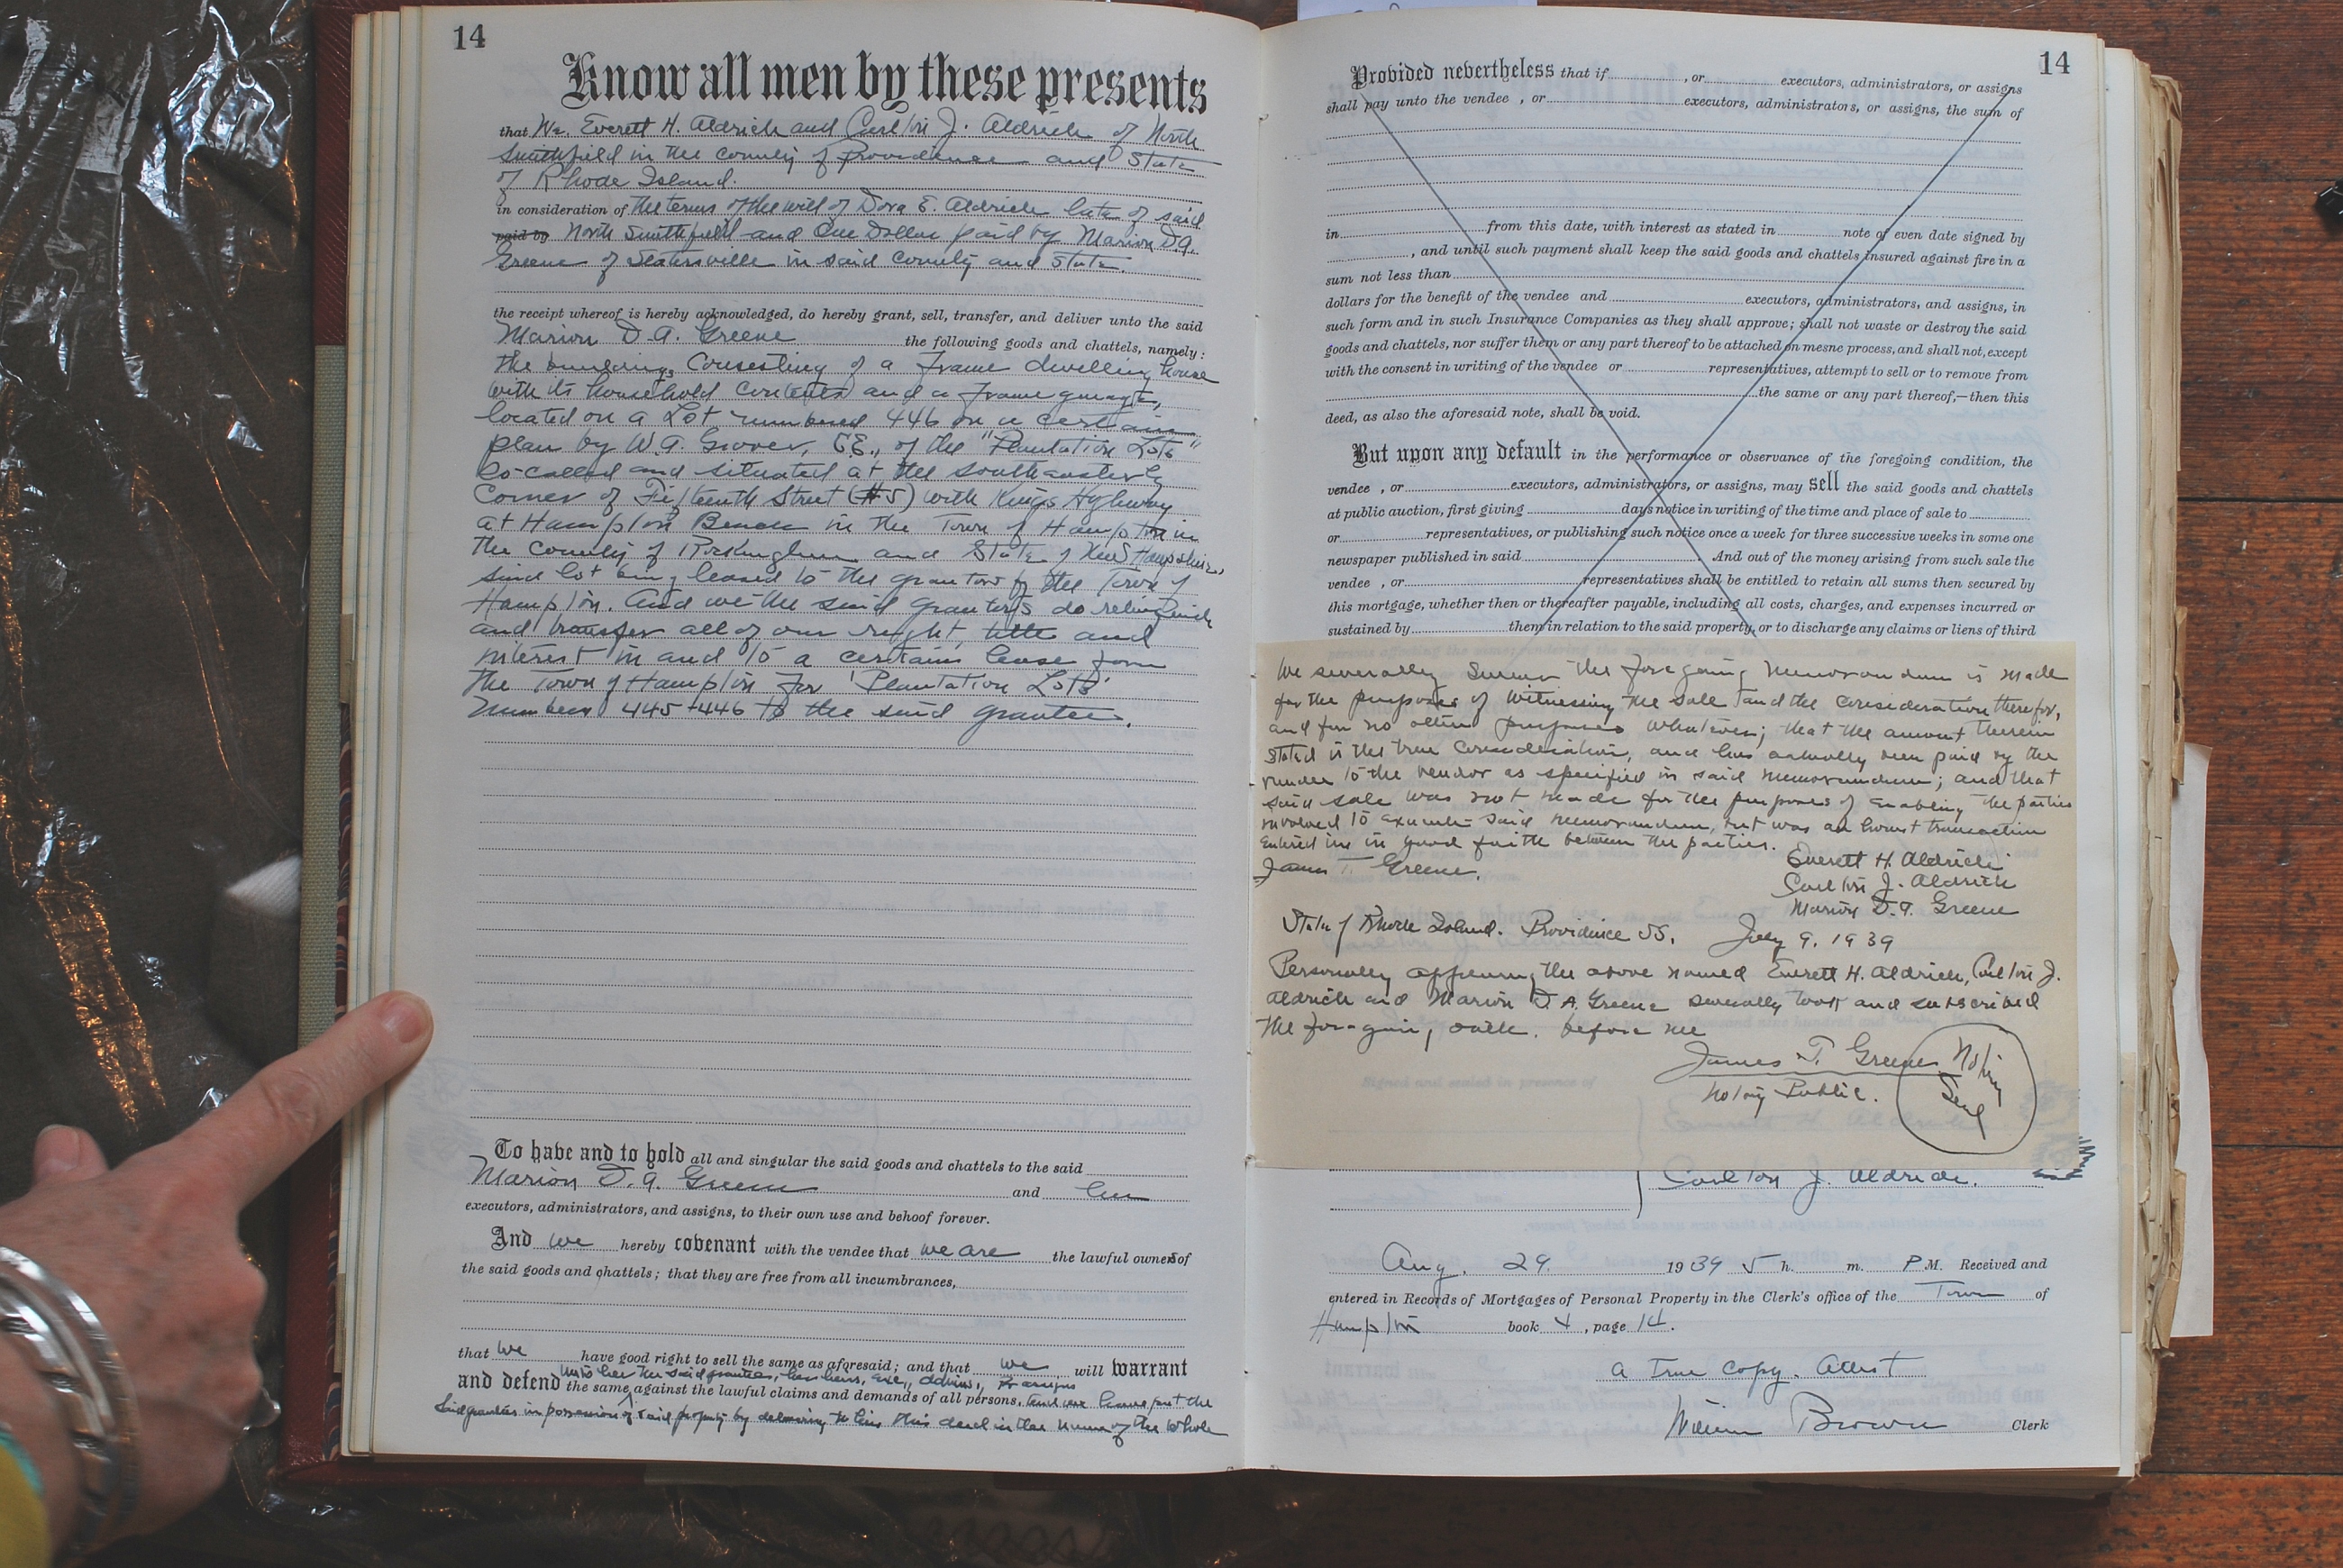 14
Know all men by these presents
that We, Everett H. Aldrich and Carlton J. Aldrich of North
Smithfield in the county of Providence and State
of Rhode Island.
in consideration of the terms of the will of Dora E. Aldrich late of said
paid by North Smithfield and One Dollar paid by Marion D.A.
Greene of Slatersville in said county and State.
the receipt whereof is hereby acknowledged, do hereby grant, sell, transfer, and deliver unto the said
Marion D.A. Greene the following goods and chattels, namely:
the buildings consisting of a Frame dwelling house
with its household contents and a frame garage,
located on a Lot numbered 446 on a certain
plan by W.A. Grover, C.E., of the "Plantation Lots"
so-called and situated at the southeasterly
corner of Fifteenth Street (#5) with Kings Highway
at Hampton Beach in the Town of Hampton in
the county of Rockingham and State of New Hampshire,
said lot being leased to the grantors by the Town of
Hampton. And we the said grantors do relinquish
and transfer all of our right, title and
interest in and to a certain lease from
the Town of Hampton for 'Plantation Lots'
numbered 445-446 to the said grantee.
To have and to hold all and singular the said goods and chattels to the said
Marion D.A. Greene and her
executors, administrators, and assigns, to their own use and behoof forever.
And we hereby covenant with the vendee that we are the lawful owners of
the said goods and chattels; that they are free from all incumbrances,
that we have good right to sell the same as aforesaid; and that we will warrant
unto her the said grantee, her heirs, exe., admins, & assigns
and defend the same against the lawful claims and demands of all persons, and we have put the
said grantee in possession of said property by delivering to her this deed in the name of the whole
14
Provided nevertheless that if , or executors, administrators, or assigns
shall pay unto the vendee , or executors, administrators, or assigns, the sum of
in from this date, with interest as stated in note of even date signed by
, and until such payment shall keep the said goods and chattels insured against fire in a
sum not less than
dollars for the benefit of the vendee and executors, administrators, and assigns, in
such form and in such Insurance Companies as they shall approve; shall not waste or destroy the said
goods and chattels, nor suffer them or any part thereof to be attached on mesne process, and shall not, except
with the consent in writing of the vendee or representatives, attempt to sell or to remove from
the same or any part thereof,—then this
deed, as also the aforesaid note, shall be void.
But upon any default in the performance or observance of the foregoing condition, the
vendee , or executors, administrators, or assigns, may sell the said goods and chattels
at public auction, first giving days notice in writing of the time and place of sale to
or representatives, or publishing such notice once a week for three successive weeks in some one
newspaper published in said And out of the money arising from such sale the
vendee , or representatives shall be entitled to retain all sums then secured by
this mortgage, whether then or thereafter payable, including all costs, charges, and expenses incurred or
sustained by them in relation to the said property, or to discharge any claims or liens of third
We severally swear the foregoing memorandum is made
for the purposes of witnessing the sale and the consideration therefor,
and for no other purposes whatever; that the amount therein
stated is the true consideration, and has actually been paid by the
vendee to the vendor as specified in said memorandum; and that
said sale was not made for the purposes of enabling the parties
involved to execute said memorandum, but was an honest transaction
entered in in good faith between the parties.
James T. Greene.
Everett H. Aldrich
Carlton J. Aldrich
Marion D.A. Greene
State of Rhode Island. Providence SS. July 9, 1939
Personally appearing the above named Everett H. Aldrich, Carlton J.
Aldrich and Marion D.A. Greene severally took and subscribed
the foregoing oath. before me
James T. Greene
Notary Public.
Notary
Seal
Carlton J. Aldrich.
Aug. 29. 1939 5 h. m. P M. Received and
entered in Records of Mortgages of Personal Property in the Clerk's office of the Town of
Hampton book 4 , page 14.
A true copy. Attest
William Brown Clerk